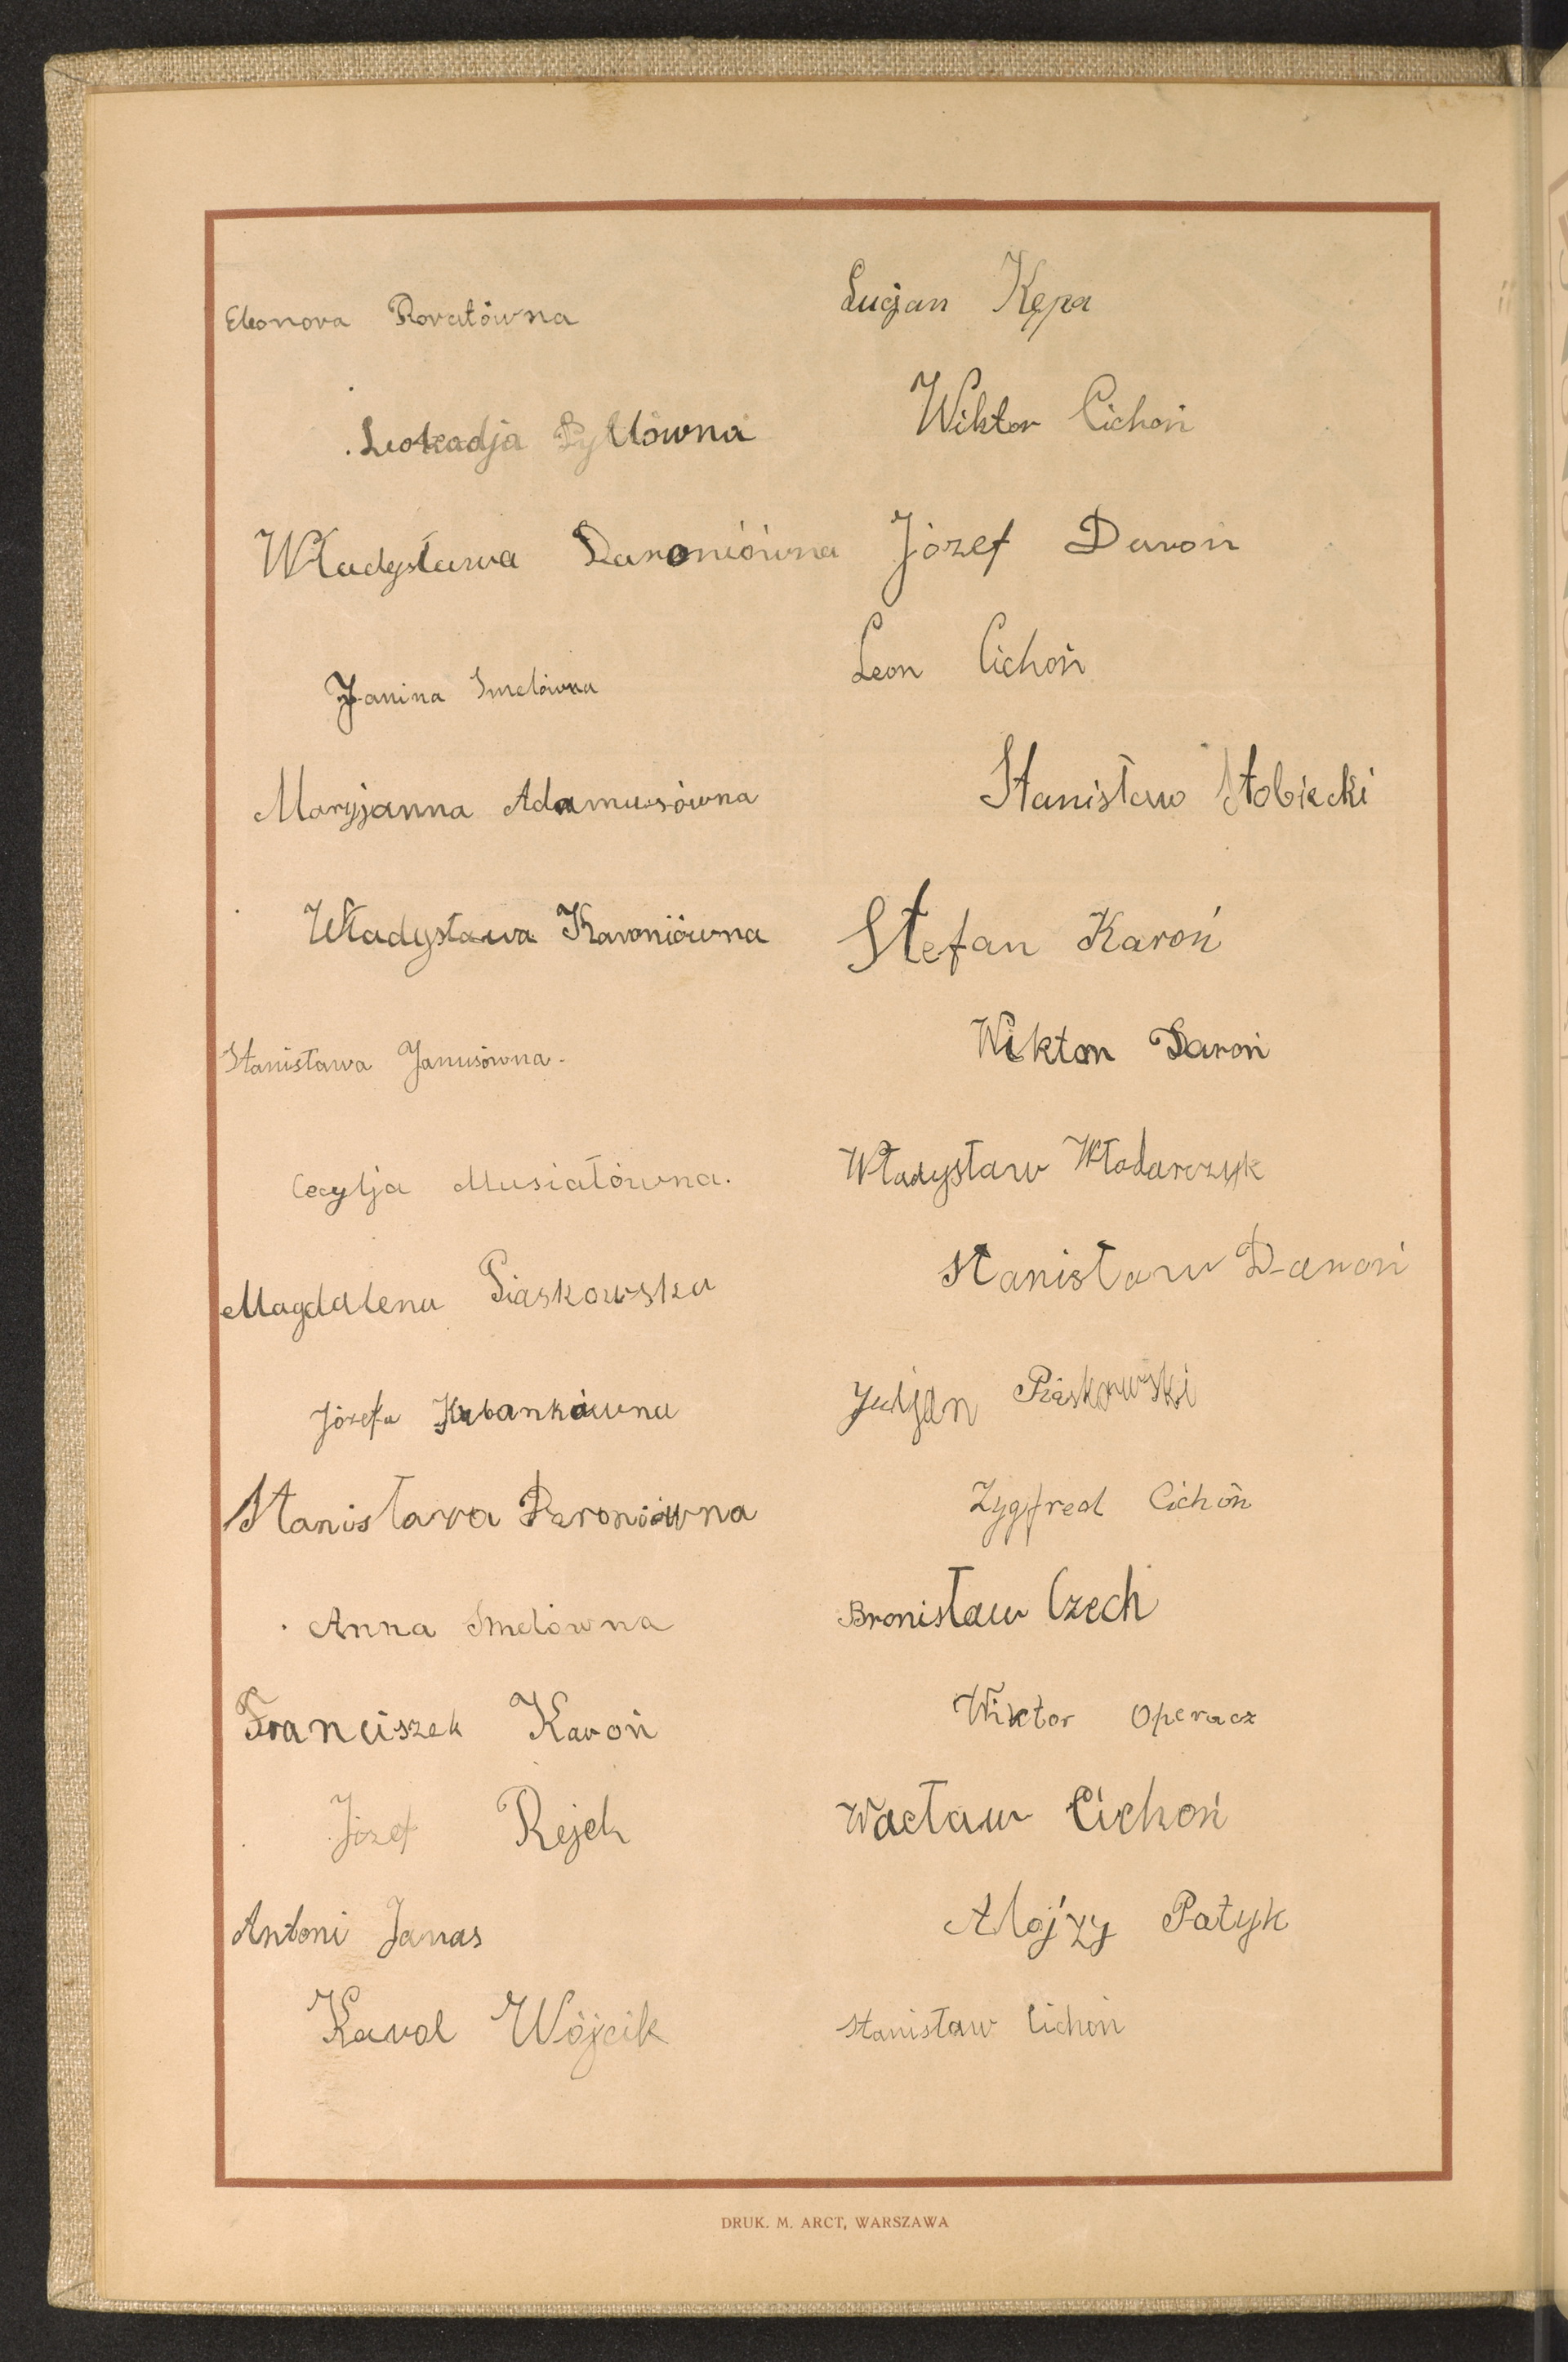 Eleonora Roratówna
Leokadja Pyttówna
Władysława Daroniówna
Janina Imelówna
Maryjanna Adamusówna
Władysława Karoniówna
Stanisława Janusówna-
Cecylja Musiałówna.
Magdalena Piaskowska
Józefa Kubankówna
Stanisława Daroniówna
Anna Imelówna
Franciszek Karoń
Józef Rejek
Antoni Janas
Karol Wójcik
Lucjan Kępa
Wiktor Cichoń
Józef Daroń
Leon Cichoń
Stanisław Stobiecki
Stefan Karoń
Wiktor Daroń
Władysław Włodarczyk
Stanisław Daroń
Juljan Piaskowski
Zygfred Cichoń
Bronisław Czech
Wiktor Operacz
Wacław Cichoń
Alojzy Patyk
Stanisław Cichoń
DRUK. M. ARCT, WARSZAWA